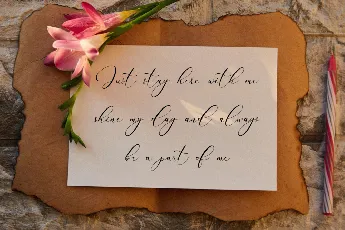 Just stay here with me
shine my day and always
be a part of me